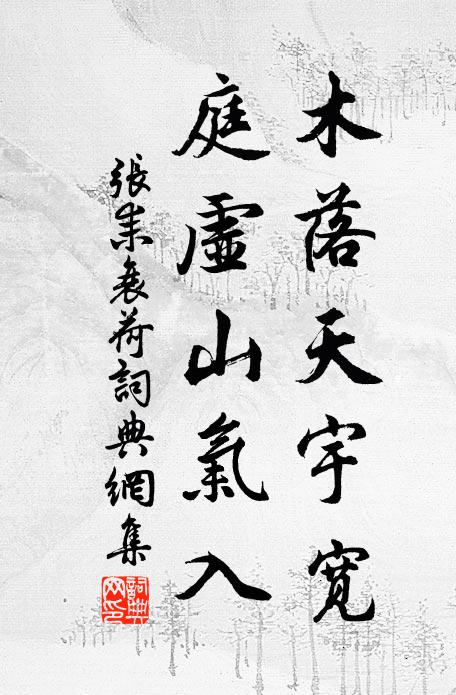 木落天宇寬
庭虛山氣入
張耒衰荷詞典網集
詞典网印